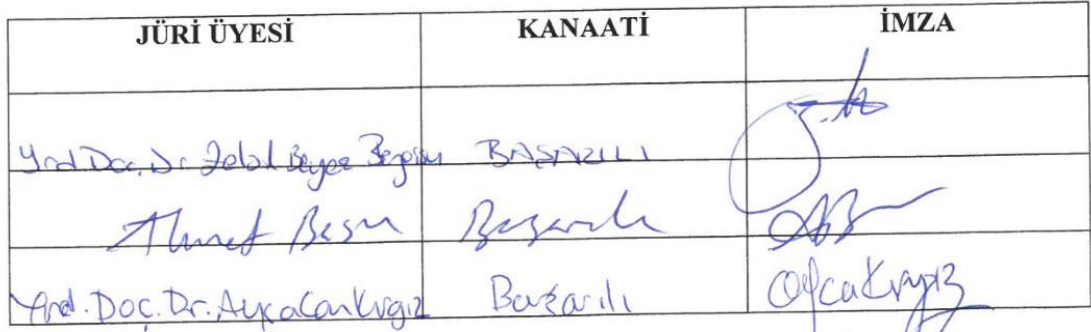 JÜRİ ÜYESİ KANAATİ İMZA
Yrd. Doç. Dr. BAŞARILI
Ahmet Başarılı
Yrd. Doç. Dr. Ayça Can Kırgız Başarılı